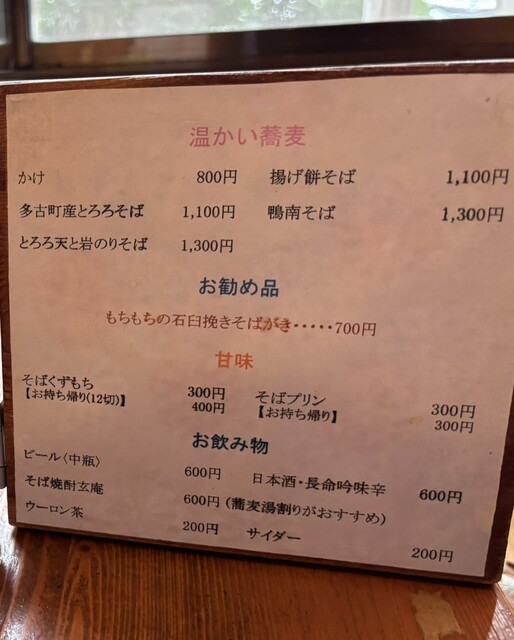 温かい蕎麦
かけ 800円 揚げ餅そば 1,100円
多古町産とろろそば 1,100円 鴨南そば 1,300円
とろろ天と岩のりそば 1,300円
お勧め品
もちもちの石臼挽きそばがき・・・・・700円
甘味
そばくずもち 300円 そばプリン 300円
【お持ち帰り(12切)】 400円 【お持ち帰り】 300円
お飲み物
ビール〈中瓶〉 600円 日本酒・長命吟味辛 600円
そば焼酎玄庵 600円 (蕎麦湯割りがおすすめ)
ウーロン茶 200円 サイダー 200円